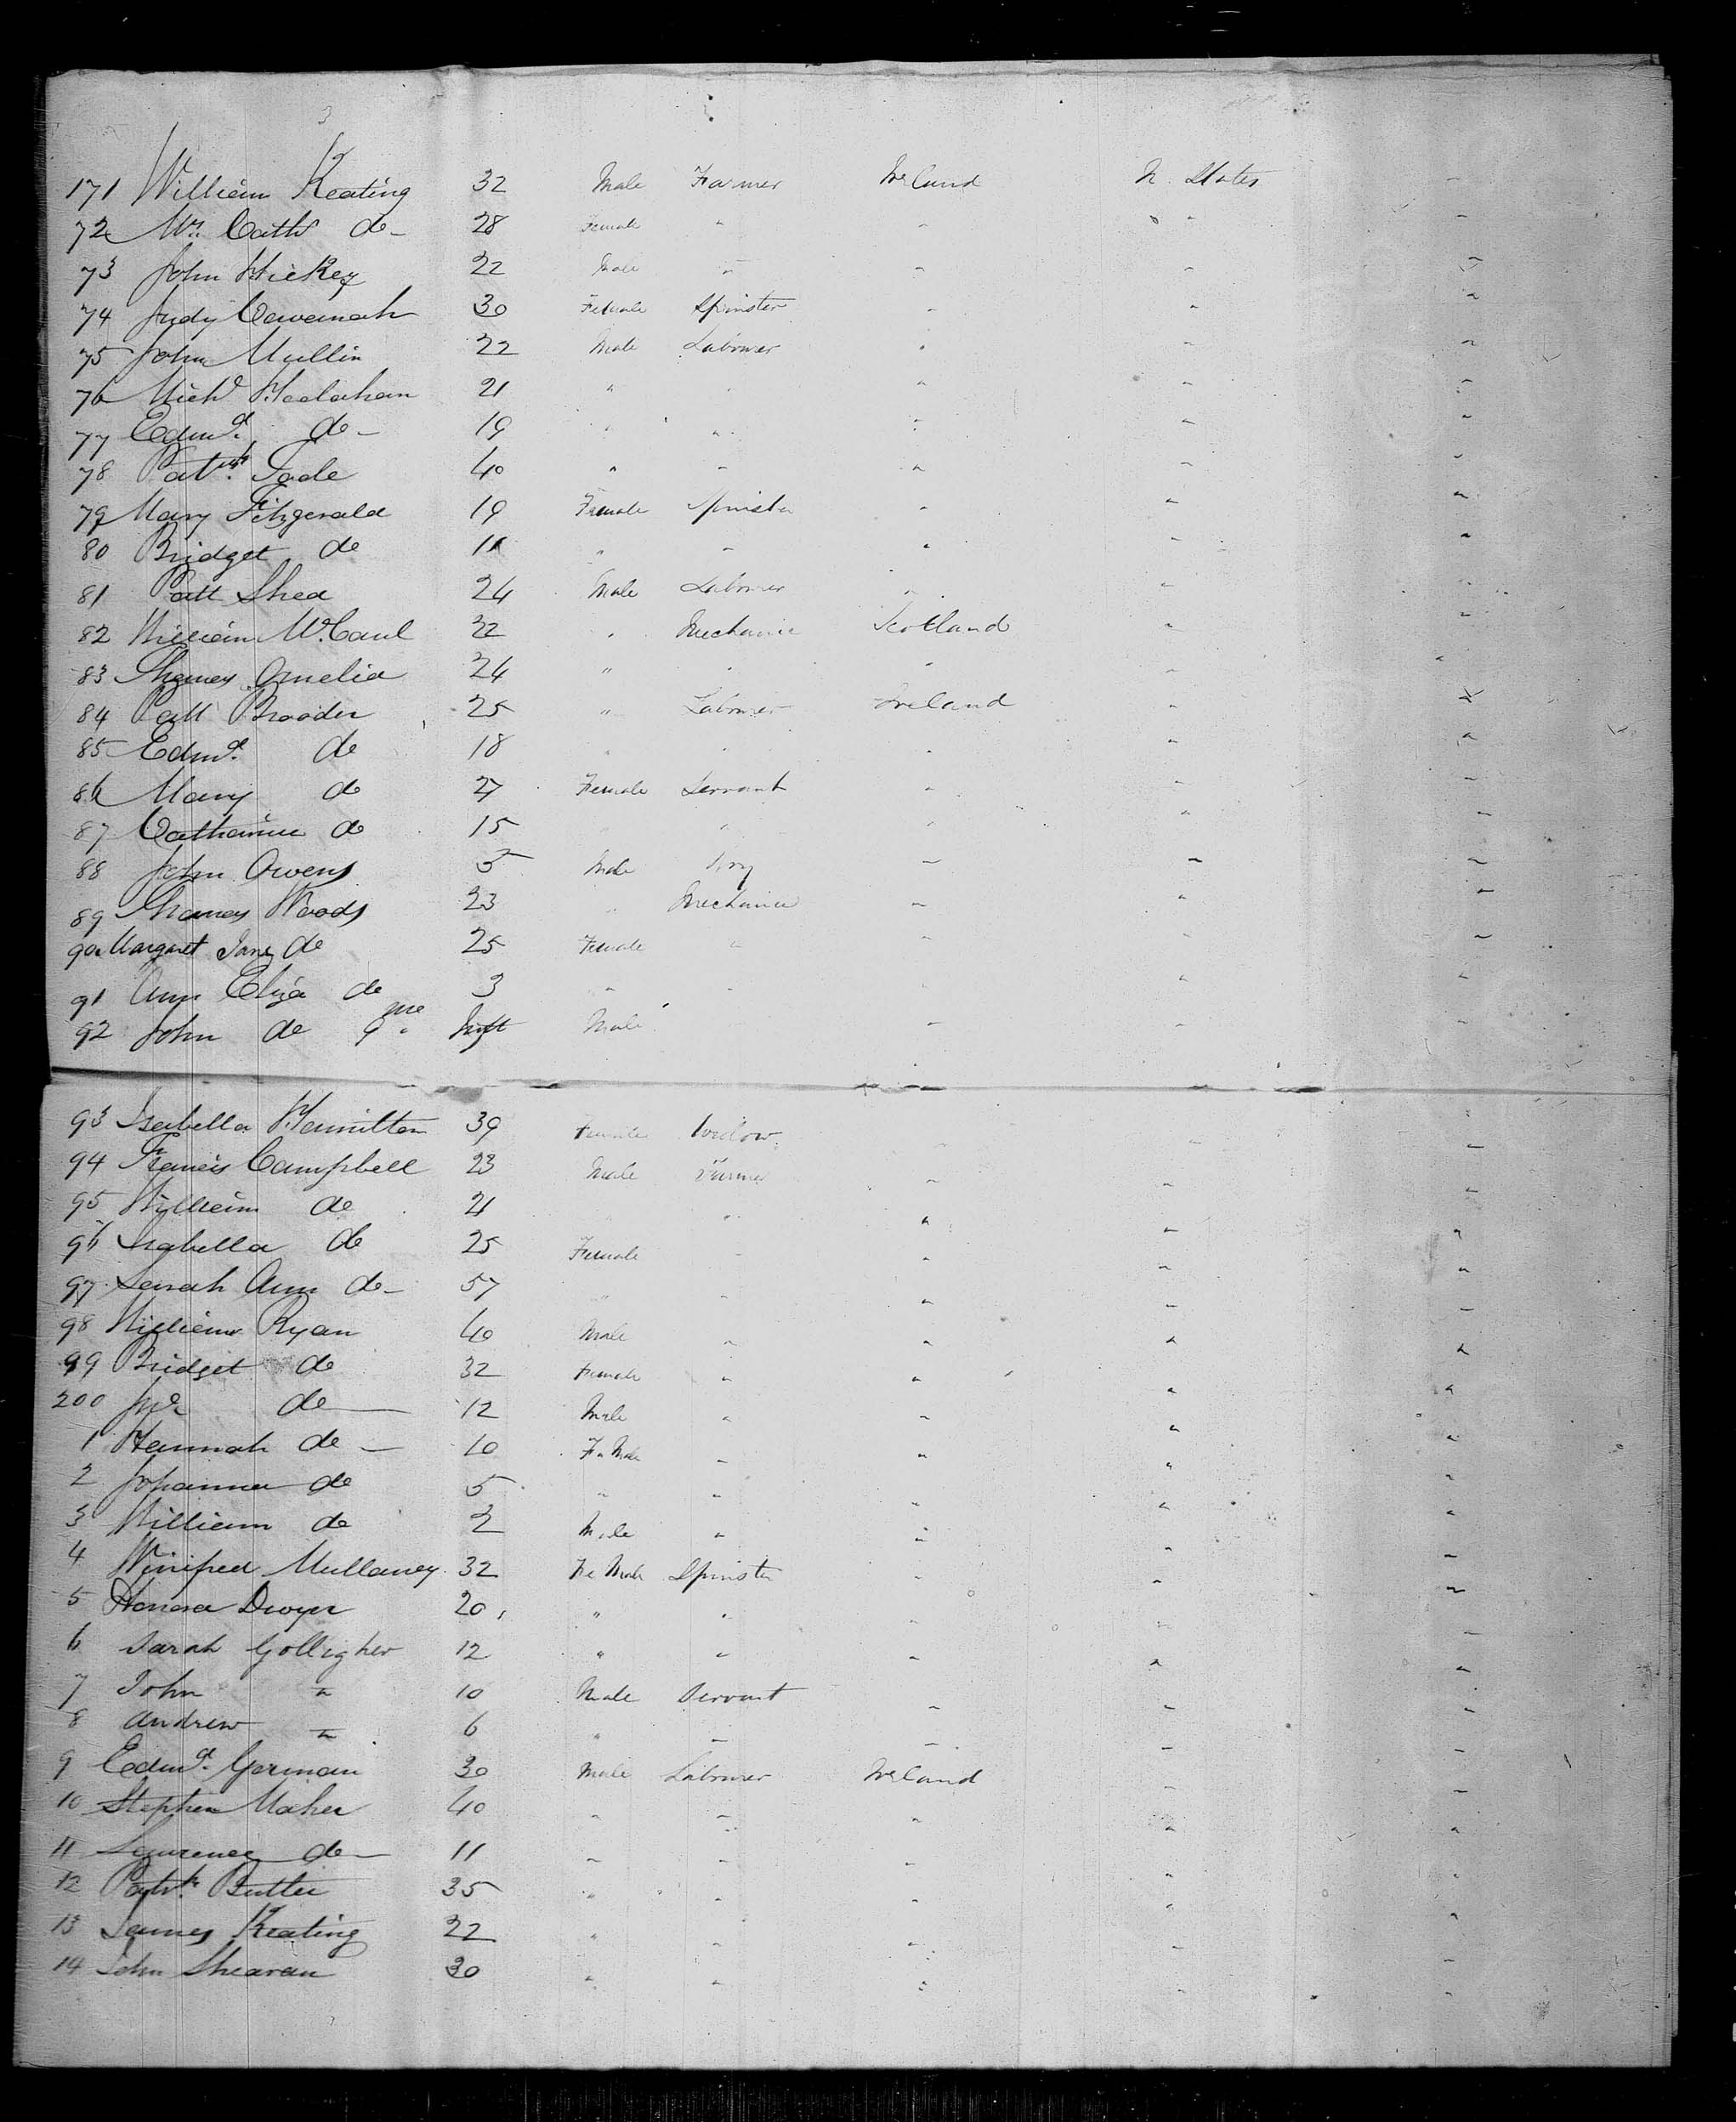 3
171 William Keating 32 Male Farmer Ireland U. States "
72 Mrs. Cathe do 28 Female " " "
73 John Hickey 22 Male " " " "
74 Judy 30 Female Spinster " " "
75 John Mullin 22 Male Labourer " " "
76 Michl 21 " " " " "
77 Edmd. do 19 " " " " "
78 Patrk. 40 " " " " "
79 Mary Fitzgerald 19 Female Spinster " " "
80 Bridget do " " " " "
81 Patt Shea 24 Male Labourer " " "
82 William McCaul 32 " Mechanic Scotland " "
83 24 " " " " "
84 Patt Brooder 25 " Labourer Ireland " "
85 Edmd. do 18 " " " " "
86 Mary do 27 Female Servant " " "
87 Catharine do 15 " " " " "
88 John Owens 5 Male Boy " " "
89 Woods 23 " Mechanic " " "
90 Margaret Jane do 25 Female " " " "
91 Ann Eliza do 3 " " " " "
92 John do Inft Male " " "
93 Isabella Hamilton 39 Female Widow " " "
94 Francis Campbell 23 Male Farmer " " "
95 William do 21 " " " " "
96 Isabella do 25 Female " " " "
97 Sarah Ann do 57 " " " " "
98 William Ryan 40 Male " " " "
99 Bridget do 32 Female " " " "
200 do 12 Male " " " "
1 Hannah do 10 Fe Male " " " "
2 Johanna do 5 " " " " "
3 William do 2 Male " " " "
4 Winifred Mullaney 32 Fe Male Spinster " " "
5 Honora Dwyer 20 " " " " "
6 Sarah Golligher 12 " " " " "
7 John " 10 Male Servant " " "
8 Andrew " 6 " " " " "
9 Edmd. Gorman 30 Male Labourer Ireland " "
10 Stephen Maher 40 " " " " "
11 Lawrence do 11 " " " " "
12 Patrk. Butler 35 " " " " "
13 James Keating 22 " " " " "
14 John Shearan 30 " " " " "